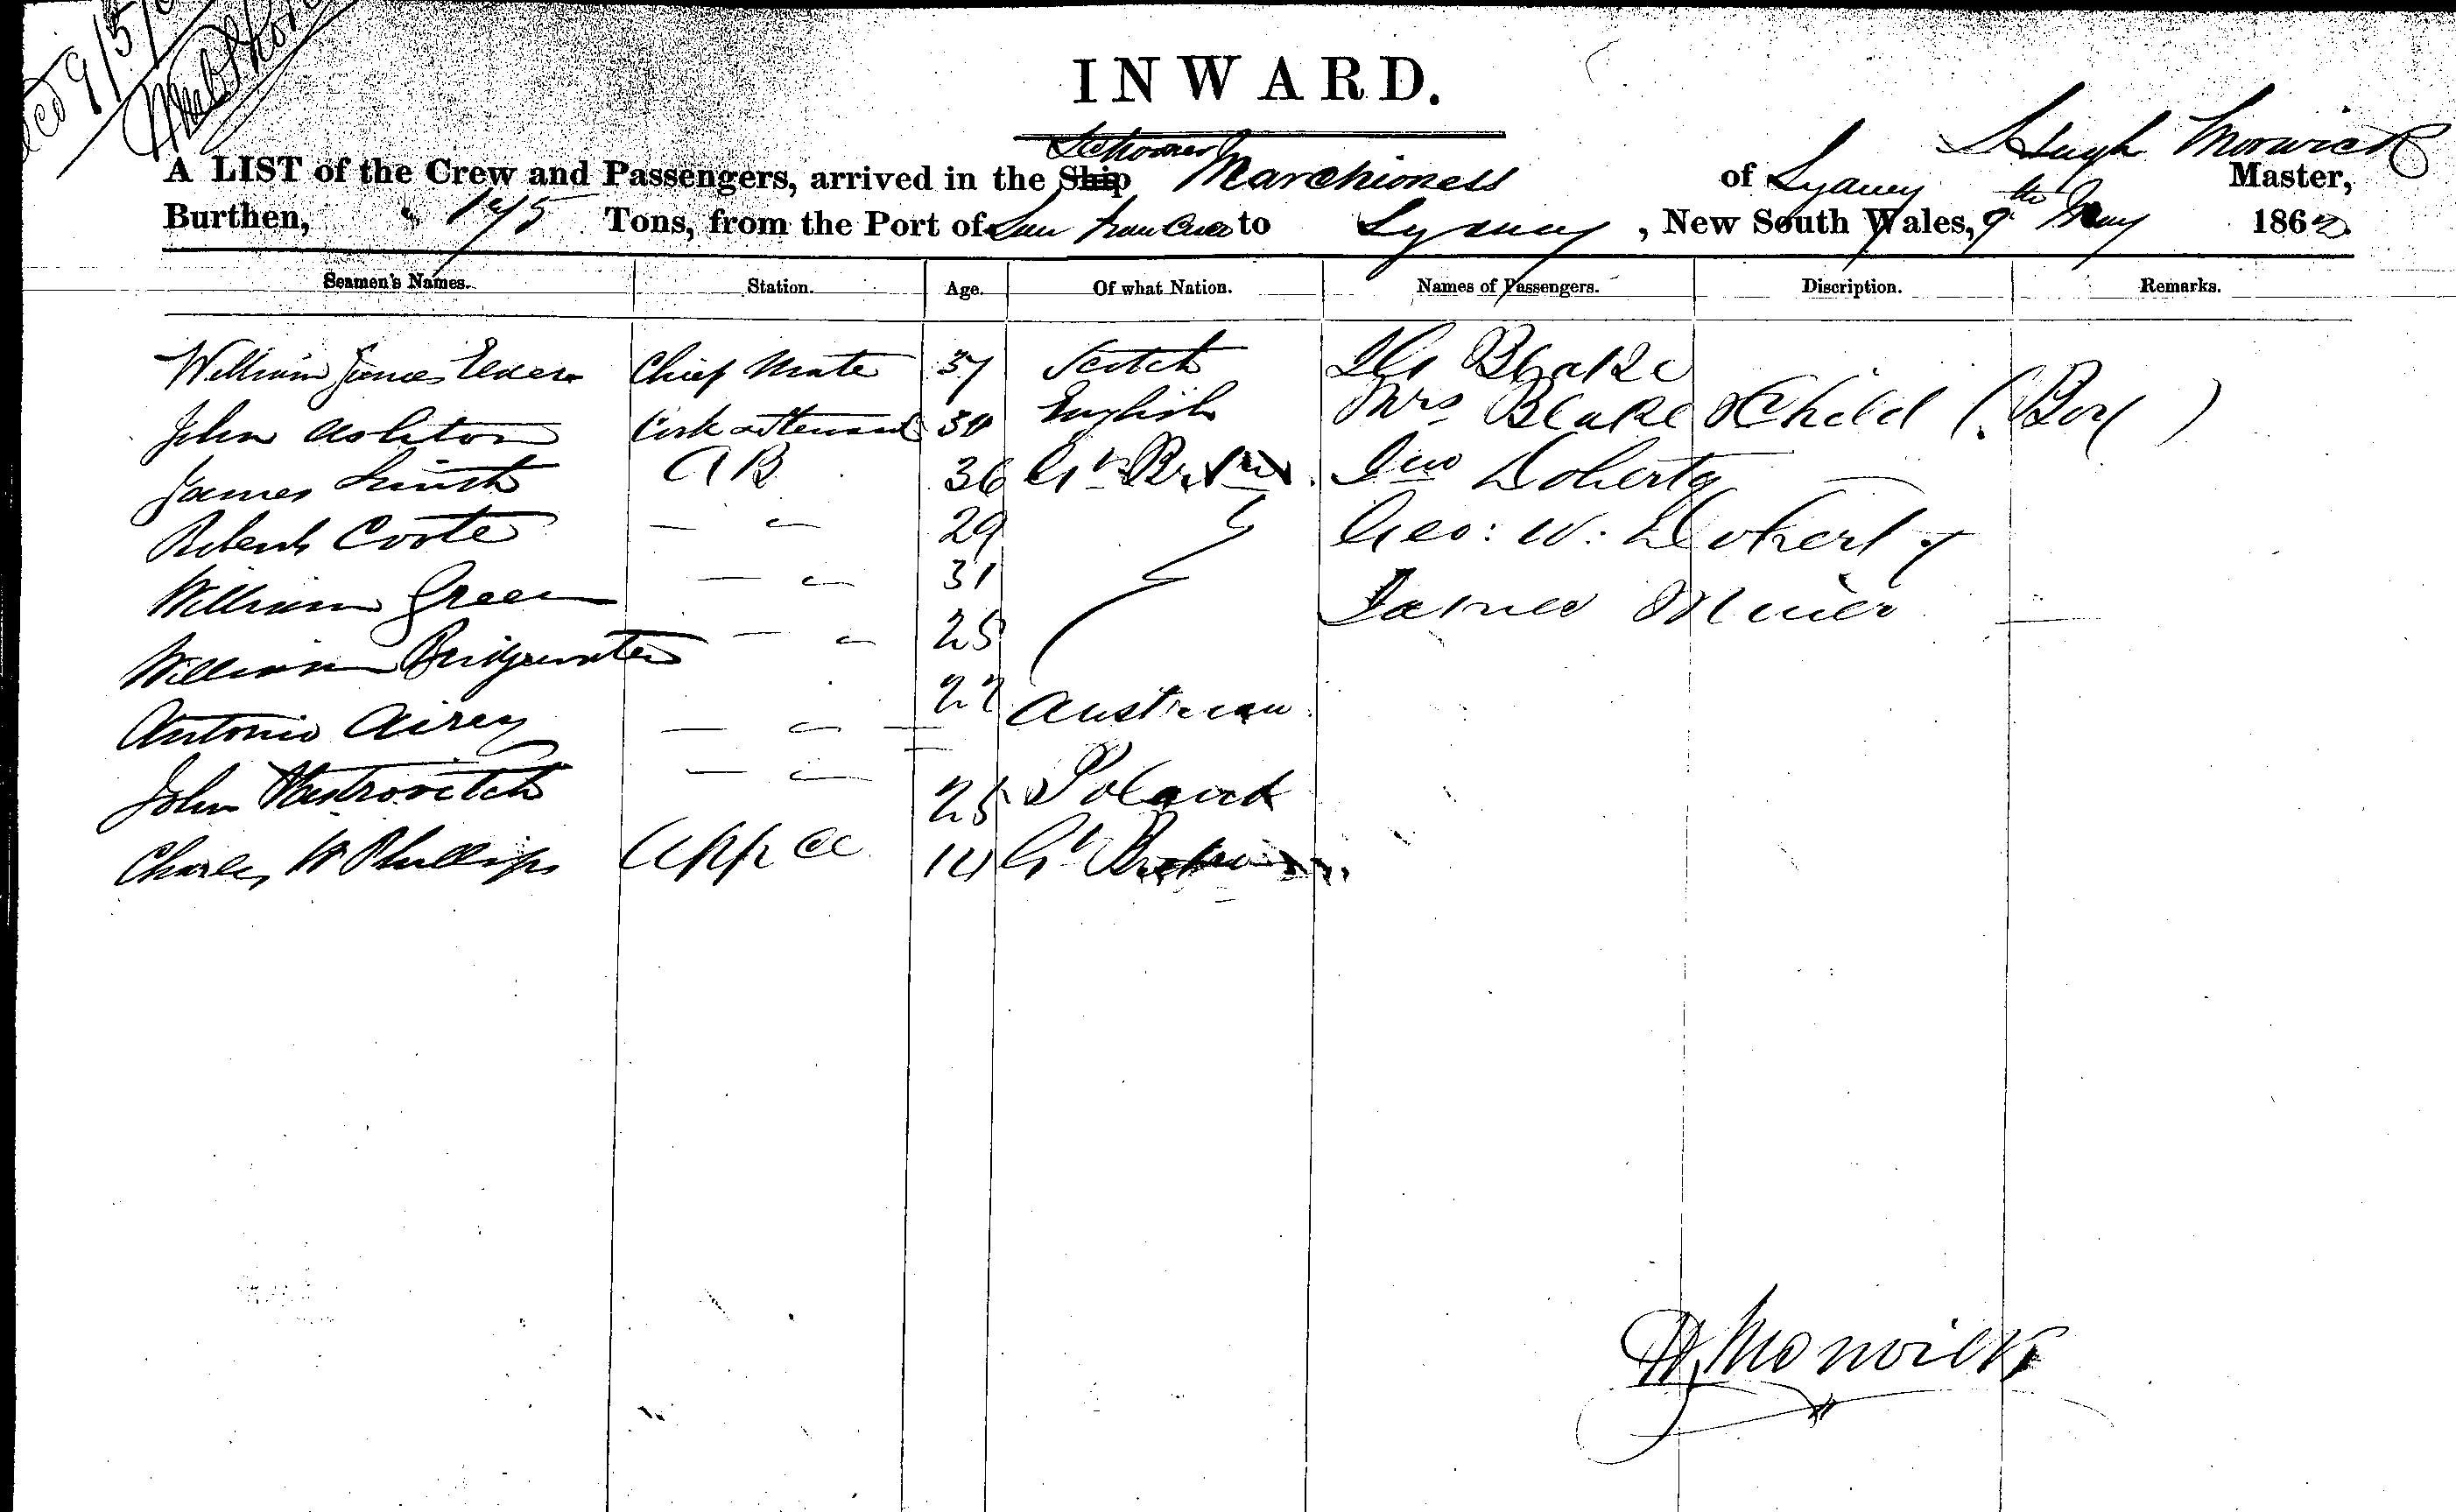 9/5/
INWARD.
Schooner Hugh Morwick
A LIST of the Crew and Passengers, arrived in the Ship Marchioness of Sydney Master,
Burthen, 175 Tons, from the Port of San Francisco to Sydney, New South Wales, 9th May 186
Seamen's Names. Station. Age. Of what Nation. Names of Passengers. Discription. Remarks.
William James Chief Mate 37 Scotch Blake
John Ashton Cook & Steward 30 English Mrs Blake & Child (Boy)
James Smith AB 36 Gt Britain Jno Doherty
Robert Coote — " 29 " Geo: W: Doherty
William Green — " 31 " James
William Bridgewater — " 25
Antonio Airey — " 22 Austrian
John — " 25 Poland
Charles W Phillips App ce 14 Gt Britain
H, Morwick